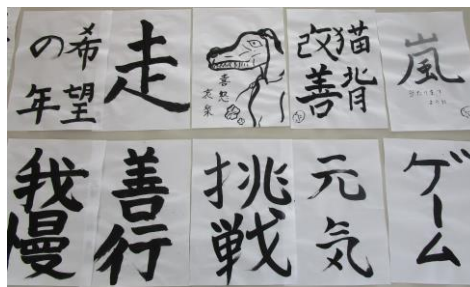 希望
の年
走
猫背
改善
嵐
我慢
善行
挑戦
元気
ゲーム